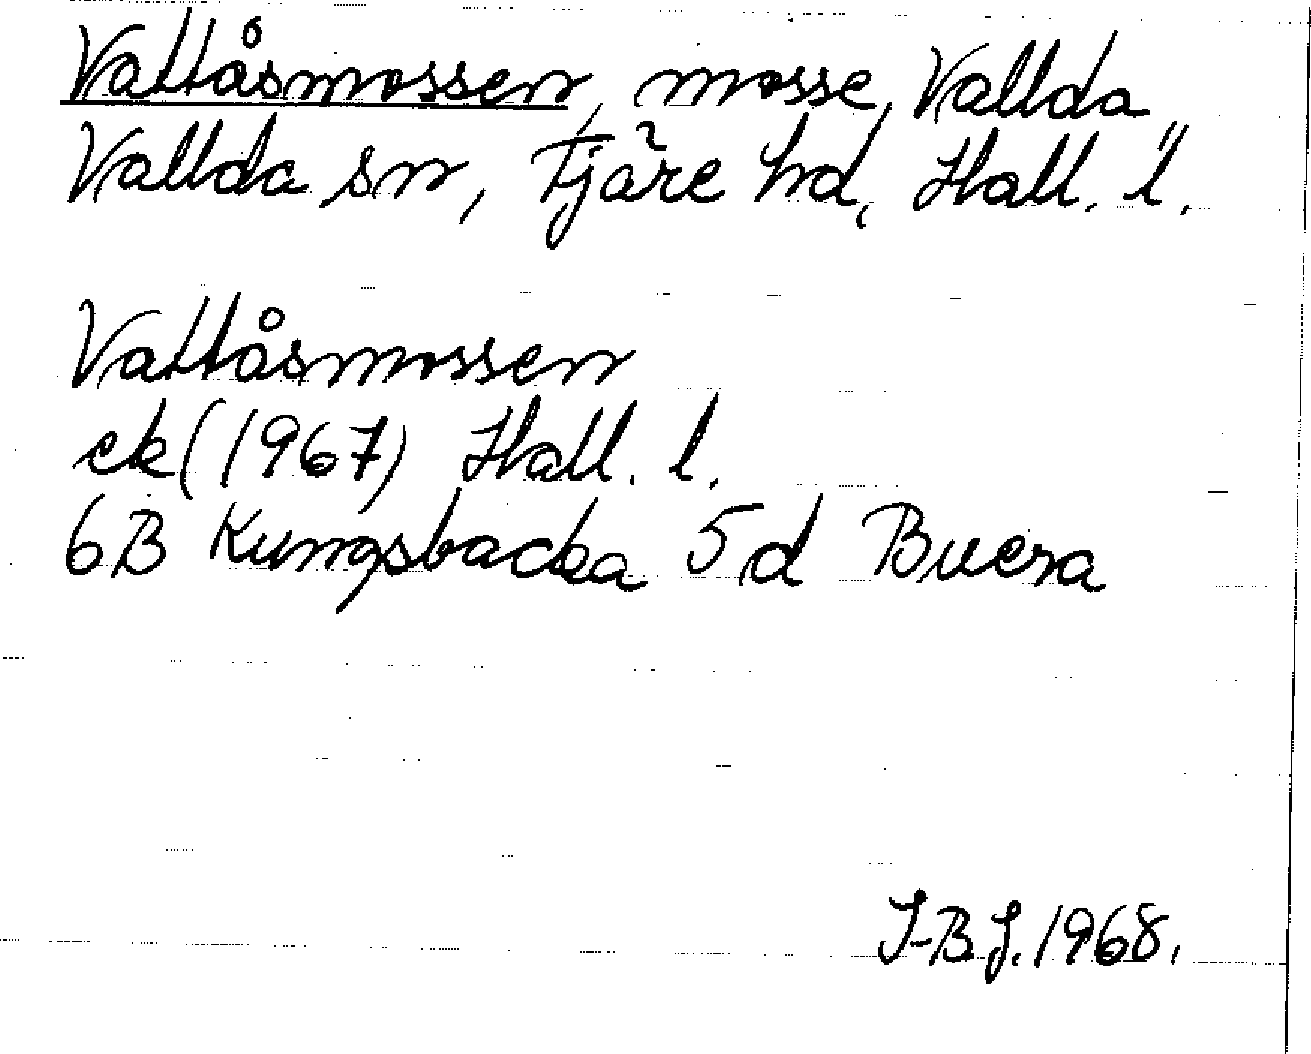 Vattåsmossen, mosse, Vallda
Vallda sn, Fjäre hd, Hall. l.
Vattåsmossen
ek (1967) Hall. l.
6B Kungsbacka 5d Buera
I-B J. 1968.